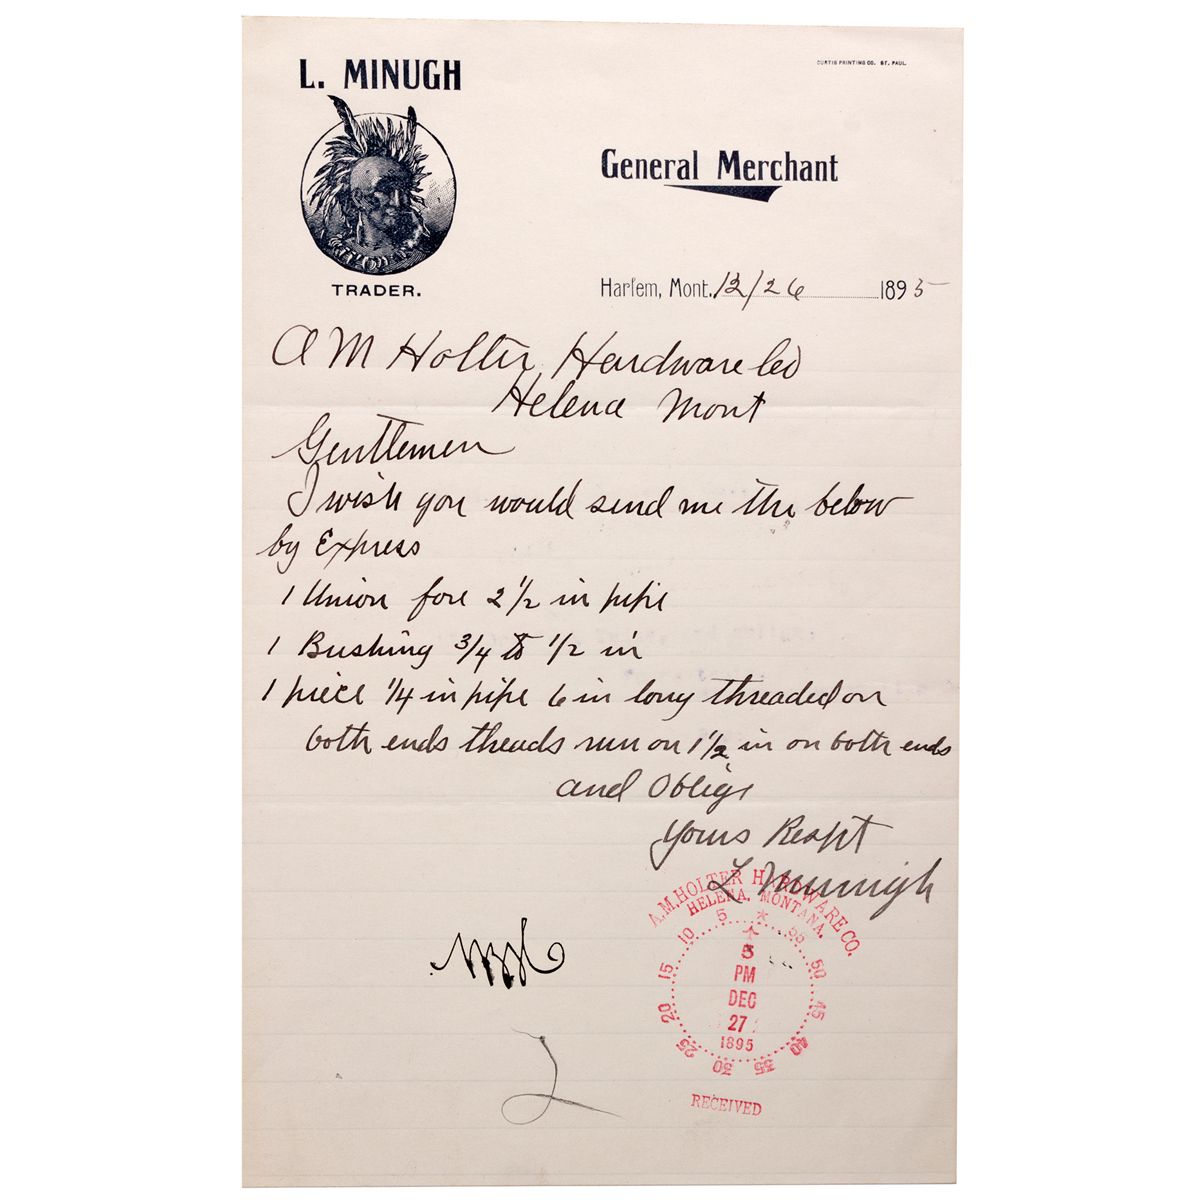 L. MINUGH
TRADER.
CURTIS PRINTING CO. ST. PAUL.
General Merchant
Harlem, Mont. 12/26 1895
A M Holter Hardware Co
Helena Mont
Gentlemen
I wish you would send me the below
by Express
1 Union fore 2 1/2 in pipe
1 Bushing 3/4 to 1/2 in
1 piece 1/4 in pipe 6 in long threaded on
both ends threads run on 1 1/2 in on both ends
and Oblige
Yours Respt
L Minugh
A.M. HOLTER HARDWARE CO.
HELENA, MONTANA.
5 10 15 20 25 30 35 40 45 50 55
5
PM
DEC
27
1895
RECEIVED